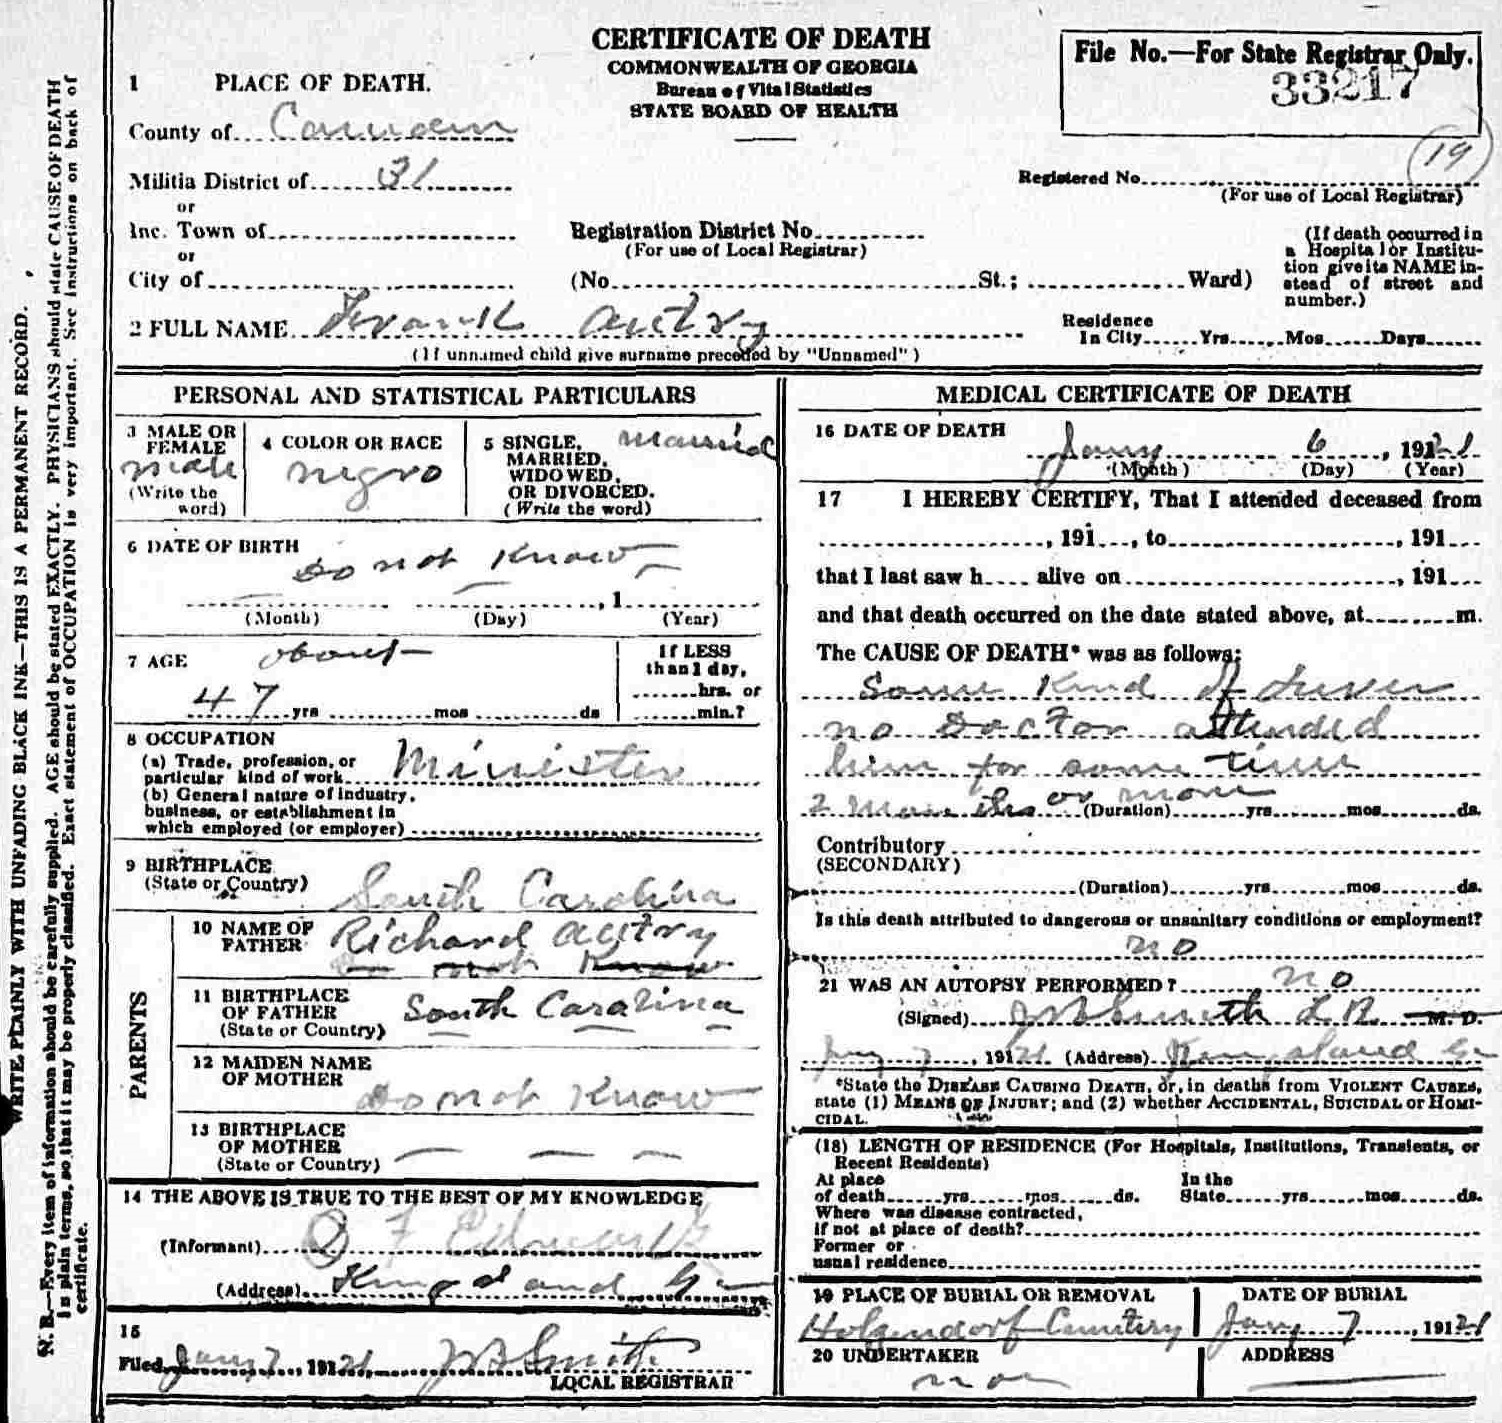 CERTIFICATE OF DEATH
COMMONWEALTH OF GEORGIA
Bureau of Vital Statistics
STATE BOARD OF HEALTH
File No.—For State Registrar Only.
33217
1 PLACE OF DEATH.
County of Camden
Militia District of 31
or
Inc. Town of
or
City of
Registration District No
(For use of Local Registrar)
(No St.; Ward)
19
Registered No
(For use of Local Registrar)
(If death occurred in
a Hospital or Institu-
tion give its NAME in-
stead of street and
number.)
2 FULL NAME Frank Autry
(If unnamed child give surname preceded by "Unnamed")
Residence
In City Yrs. Mos Days
PERSONAL AND STATISTICAL PARTICULARS
3 MALE OR
FEMALE
male
(Write the
word)
4 COLOR OR RACE
negro
5 SINGLE, married
MARRIED,
WIDOWED,
OR DIVORCED.
(Write the word)
6 DATE OF BIRTH
Do not Know
, 1
(Month) (Day) (Year)
7 AGE about
47 yrs mos ds
If LESS
than 1 day,
hrs. or
min.?
8 OCCUPATION
(a) Trade, profession, or
particular kind of work Minister
(b) General nature of industry,
business, or establishment in
which employed (or employer)
9 BIRTHPLACE
(State or Country) South Carolina
PARENTS
10 NAME OF
FATHER Richard Autry
Do not Know
11 BIRTHPLACE
OF FATHER
(State or Country) South Carolina
12 MAIDEN NAME
OF MOTHER
Do not Know
13 BIRTHPLACE
OF MOTHER
(State or Country) — — —
14 THE ABOVE IS TRUE TO THE BEST OF MY KNOWLEDGE
(Informant) F Edwards
(Address) Kingsland Ga
15
Filed Jany 7, 19121 Smith
LOCAL REGISTRAR
MEDICAL CERTIFICATE OF DEATH
16 DATE OF DEATH
Jany 6, 19121
(Month) (Day) (Year)
17 I HEREBY CERTIFY, That I attended deceased from
, 191 , to , 191
that I last saw h alive on , 191
and that death occurred on the date stated above, at m.
The CAUSE OF DEATH* was as follows:
Some Kind of fever
no Doctor attended
him for some time
2 Months or more (Duration) yrs mos ds.
Contributory
(SECONDARY)
(Duration) yrs mos ds.
Is this death attributed to dangerous or unsanitary conditions or employment?
no
21 WAS AN AUTOPSY PERFORMED? no
(Signed) Smith L R M. D.
Jany 7, 19121 (Address) Kingsland Ga
*State the DISEASE CAUSING DEATH, or, in deaths from VIOLENT CAUSES,
state (1) MEANS OF INJURY; and (2) whether ACCIDENTAL, SUICIDAL or HOMI-
CIDAL.
(18) LENGTH OF RESIDENCE (For Hospitals, Institutions, Transients, or
Recent Residents)
At place In the
of death yrs mos ds. State yrs mos ds.
Where was disease contracted,
if not at place of death?
Former or
usual residence
19 PLACE OF BURIAL OR REMOVAL
Holzendorf Cemetery
DATE OF BURIAL
Jany 7, 19121
20 UNDERTAKER
non
ADDRESS
WRITE PLAINLY WITH UNFADING BLACK INK—THIS IS A PERMANENT RECORD.
N. B.—Every item of information should be carefully supplied. AGE should be stated EXACTLY. PHYSICIANS should state CAUSE OF DEATH
in plain terms, so that it may be properly classified. Exact statement of OCCUPATION is very important. See instructions on back of
certificate.